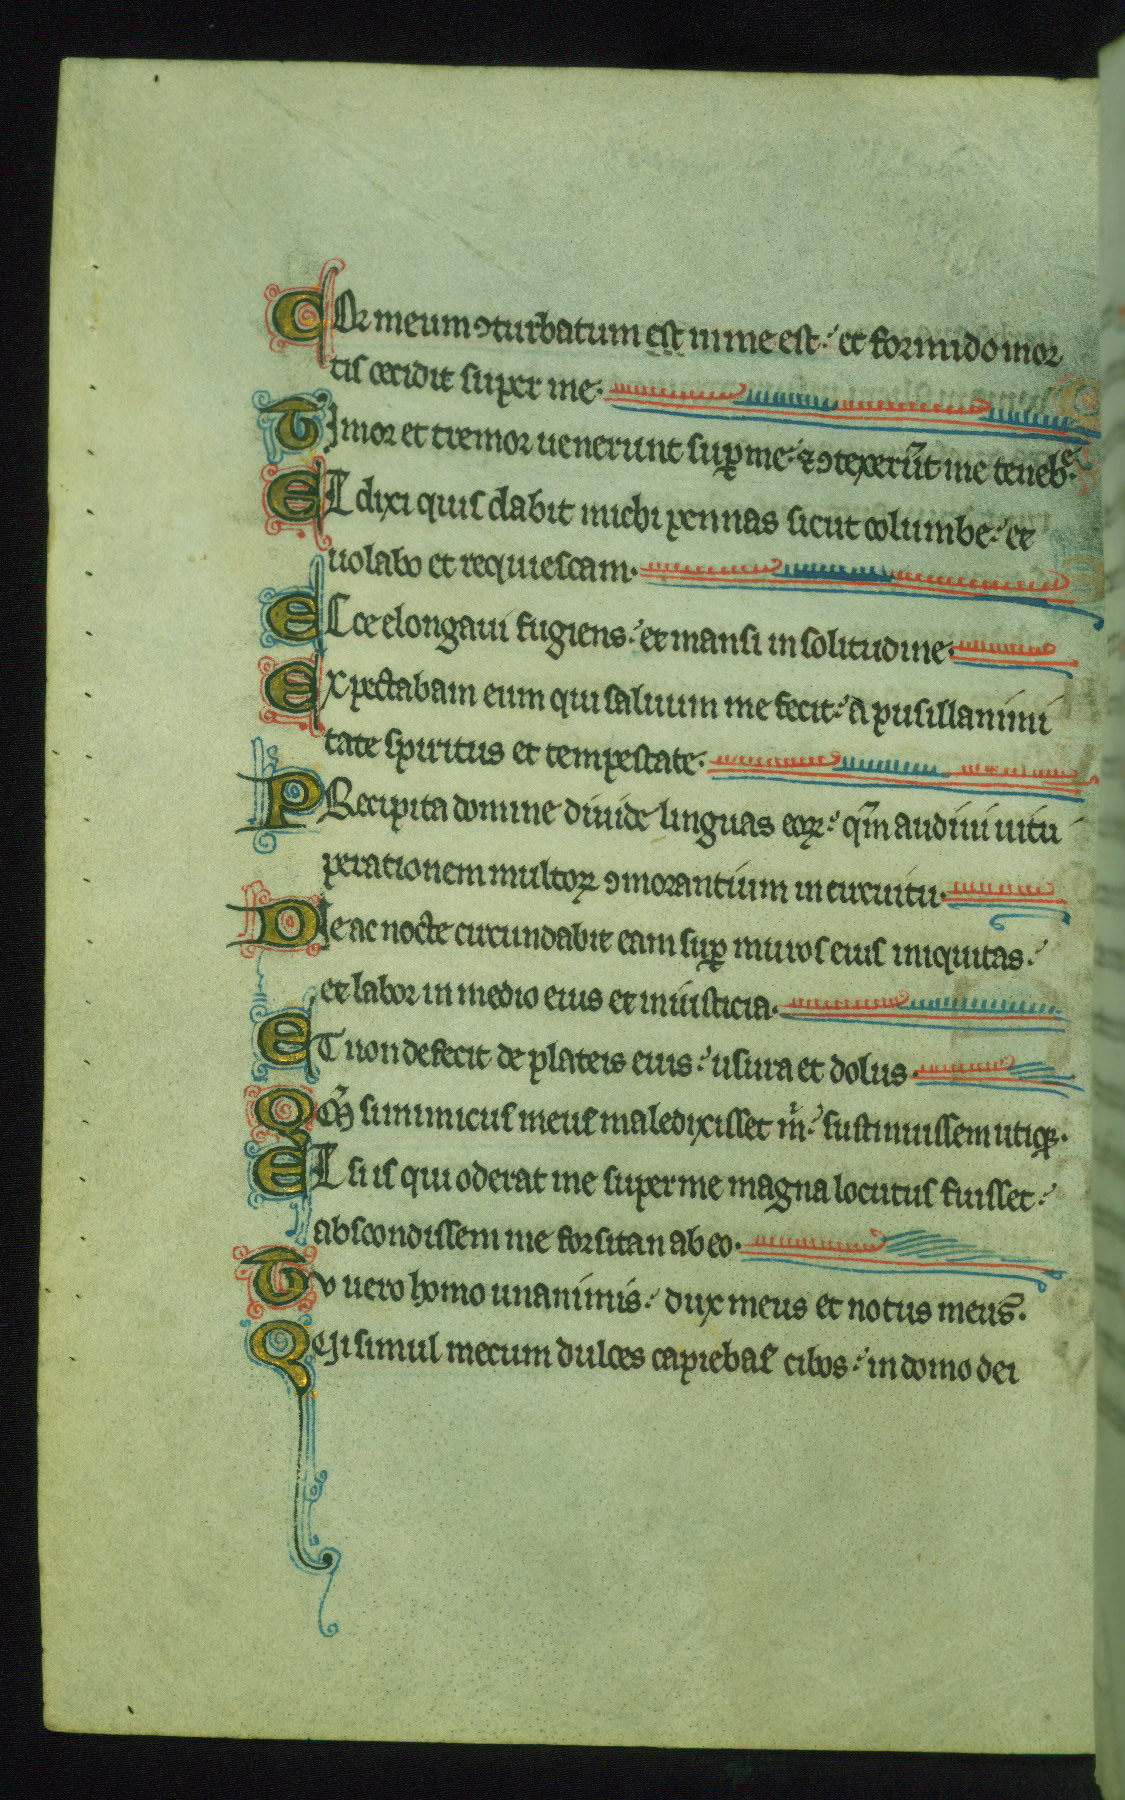 COr meum ꝯturbatum est in me est: et formido mor
tis cecidit super me.
TImor et tremor uenerunt suꝑ me: ⁊ ꝯtexerūt me tenebᵉ.
ET dixi quis dabit michi pennas sicut columbe: et
uolabo et requiescam.
ECce elongaui fugiens: et mansi in solitudine.
EXpectabam eum qui saluum me fecit: a pusillanimi
tate spiritus et tempestate.
PRecipita domine diuide linguas eoꝝ: qm̄ audiui uitu
perationem multoꝝ ꝯmorantium in circuitu.
DIe ac nocte circundabit eam suꝑ muros eius iniquitas:
et labor in medio eius et iniusticia.
ET non defecit de plateis eius: usura et dolus.
QM̄ si inimicus meus maledixisset m̄: sustinuissem utiqꝫ.
ET si is qui oderat me super me magna locutus fuisset:
abscondissem me forsitan ab eo.
TV uero homo unanimis: dux meus et notus meus.
QUi simul mecum dulces capiebas cibos: in domo dei